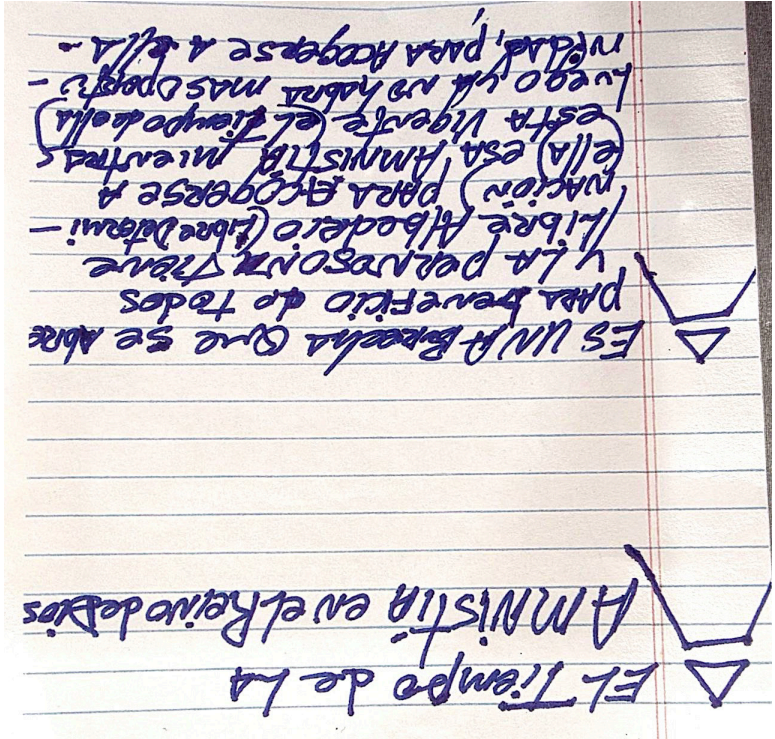 EL Tiempo de LA
AMNISTIA en el Reino de Dios
ES UNA Brecha Que se Abre
para beneficio de todos
y LA persona Tiene
Libre Albedrio (Libre Determi-
NACIÓN) PARA ACOGERSE A
(ella) ESA AMNISTIA mientras
esta vigente (el Tiempo de ella)
Luego, ya no habra mas oportu-
nidad, para Acogerse A ella-